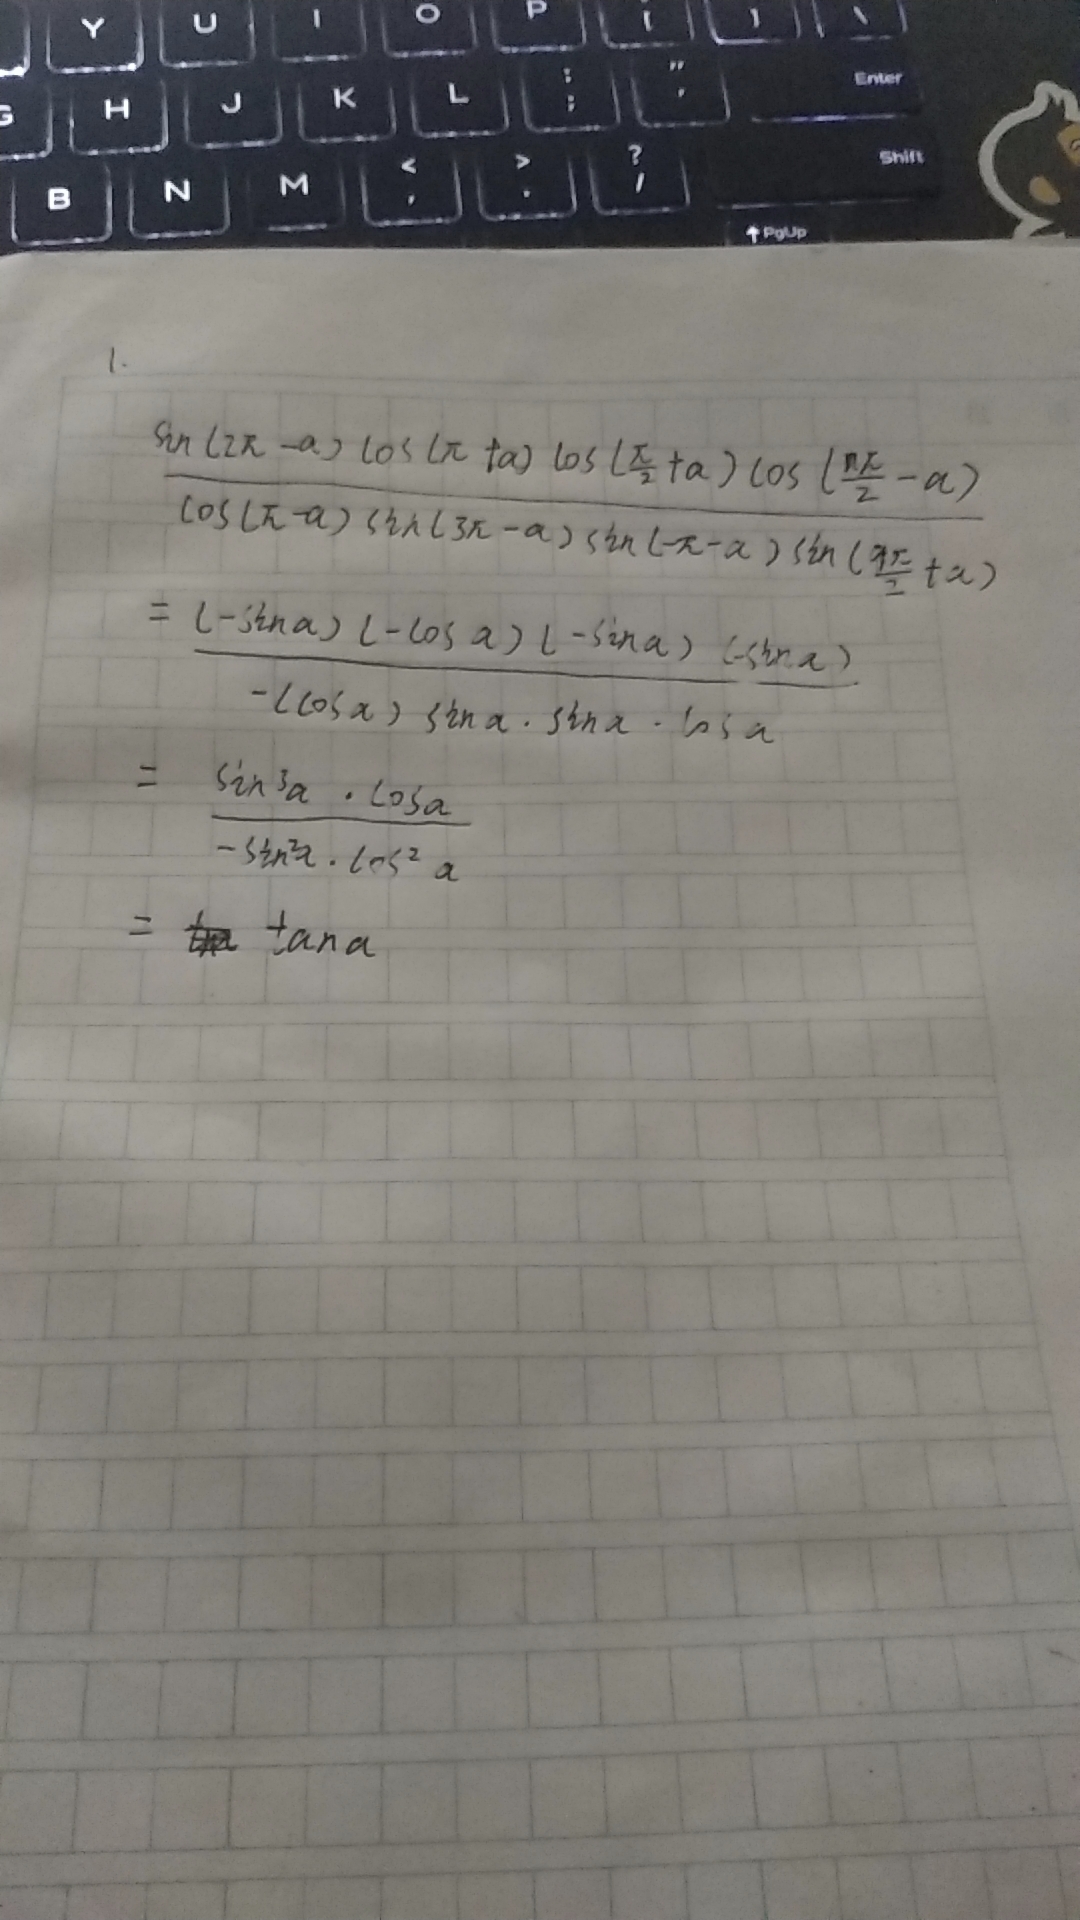 Y U I O P [ ] \
G H J K L : ; " ' Enter
B N M < , > . ? / Shift
↑ PgUp
1.
sin(2π-a) cos(π+a) cos(π/2+a) cos(11π/2-a)
cos(π-a) sin(3π-a) sin(-π-a) sin(9π/2+a)
= (-sina) (-cosa) (-sina) (-sina)
-(cosa) sina · sina · cosa
= sin³a · cosa
-sin²a · cos²a
= tana